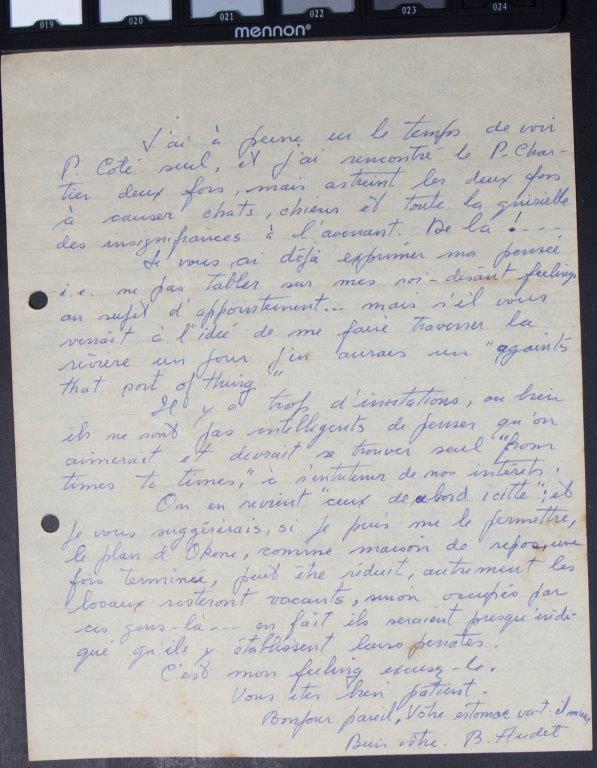 019 020 021 022 023 024
mennon®
J'ai à peine eu le temps de voir
P. Coté seul, et j'ai rencontré le P. Char-
tier deux fois, mais astreint les deux fois
à causer chats, chiens et toute la
des insignifiances à l'avenant. De la !----
Je vous ai déjà exprimer ma pensée
i.e. ne pas tabler sur mes soi-disant feelings
au sujet d'appointement... mais s'il vous
venait à l'idée de me faire traverser la
rivière un jour j'en aurais un "againts
that sort of thing."
Il y a trop d'invitations, ou bien
ils ne sont pas intelligents de penser qu'on
aimerait et devrait se trouver seul "from
times to times," à s'entretenir de nos intérêts.
On en revient "ceux de abord icitte"; et
je vous suggérerais, si je puis me le permettre,
le plan d'Okene, comme maison de repos, une
fois terminée, peut être réduit, autrement les
locaux resteront vacants, sinon occupés par
ces gens-là--- en fait ils seraient presqu'indi-
que qu'ils y établissent leurs penates.
C'est mon feeling excusez-le.
Vous êtes bien patient.
Bonjour pareil, Votre estomac va-t-il mieux
Bien vôtre. B. Audet